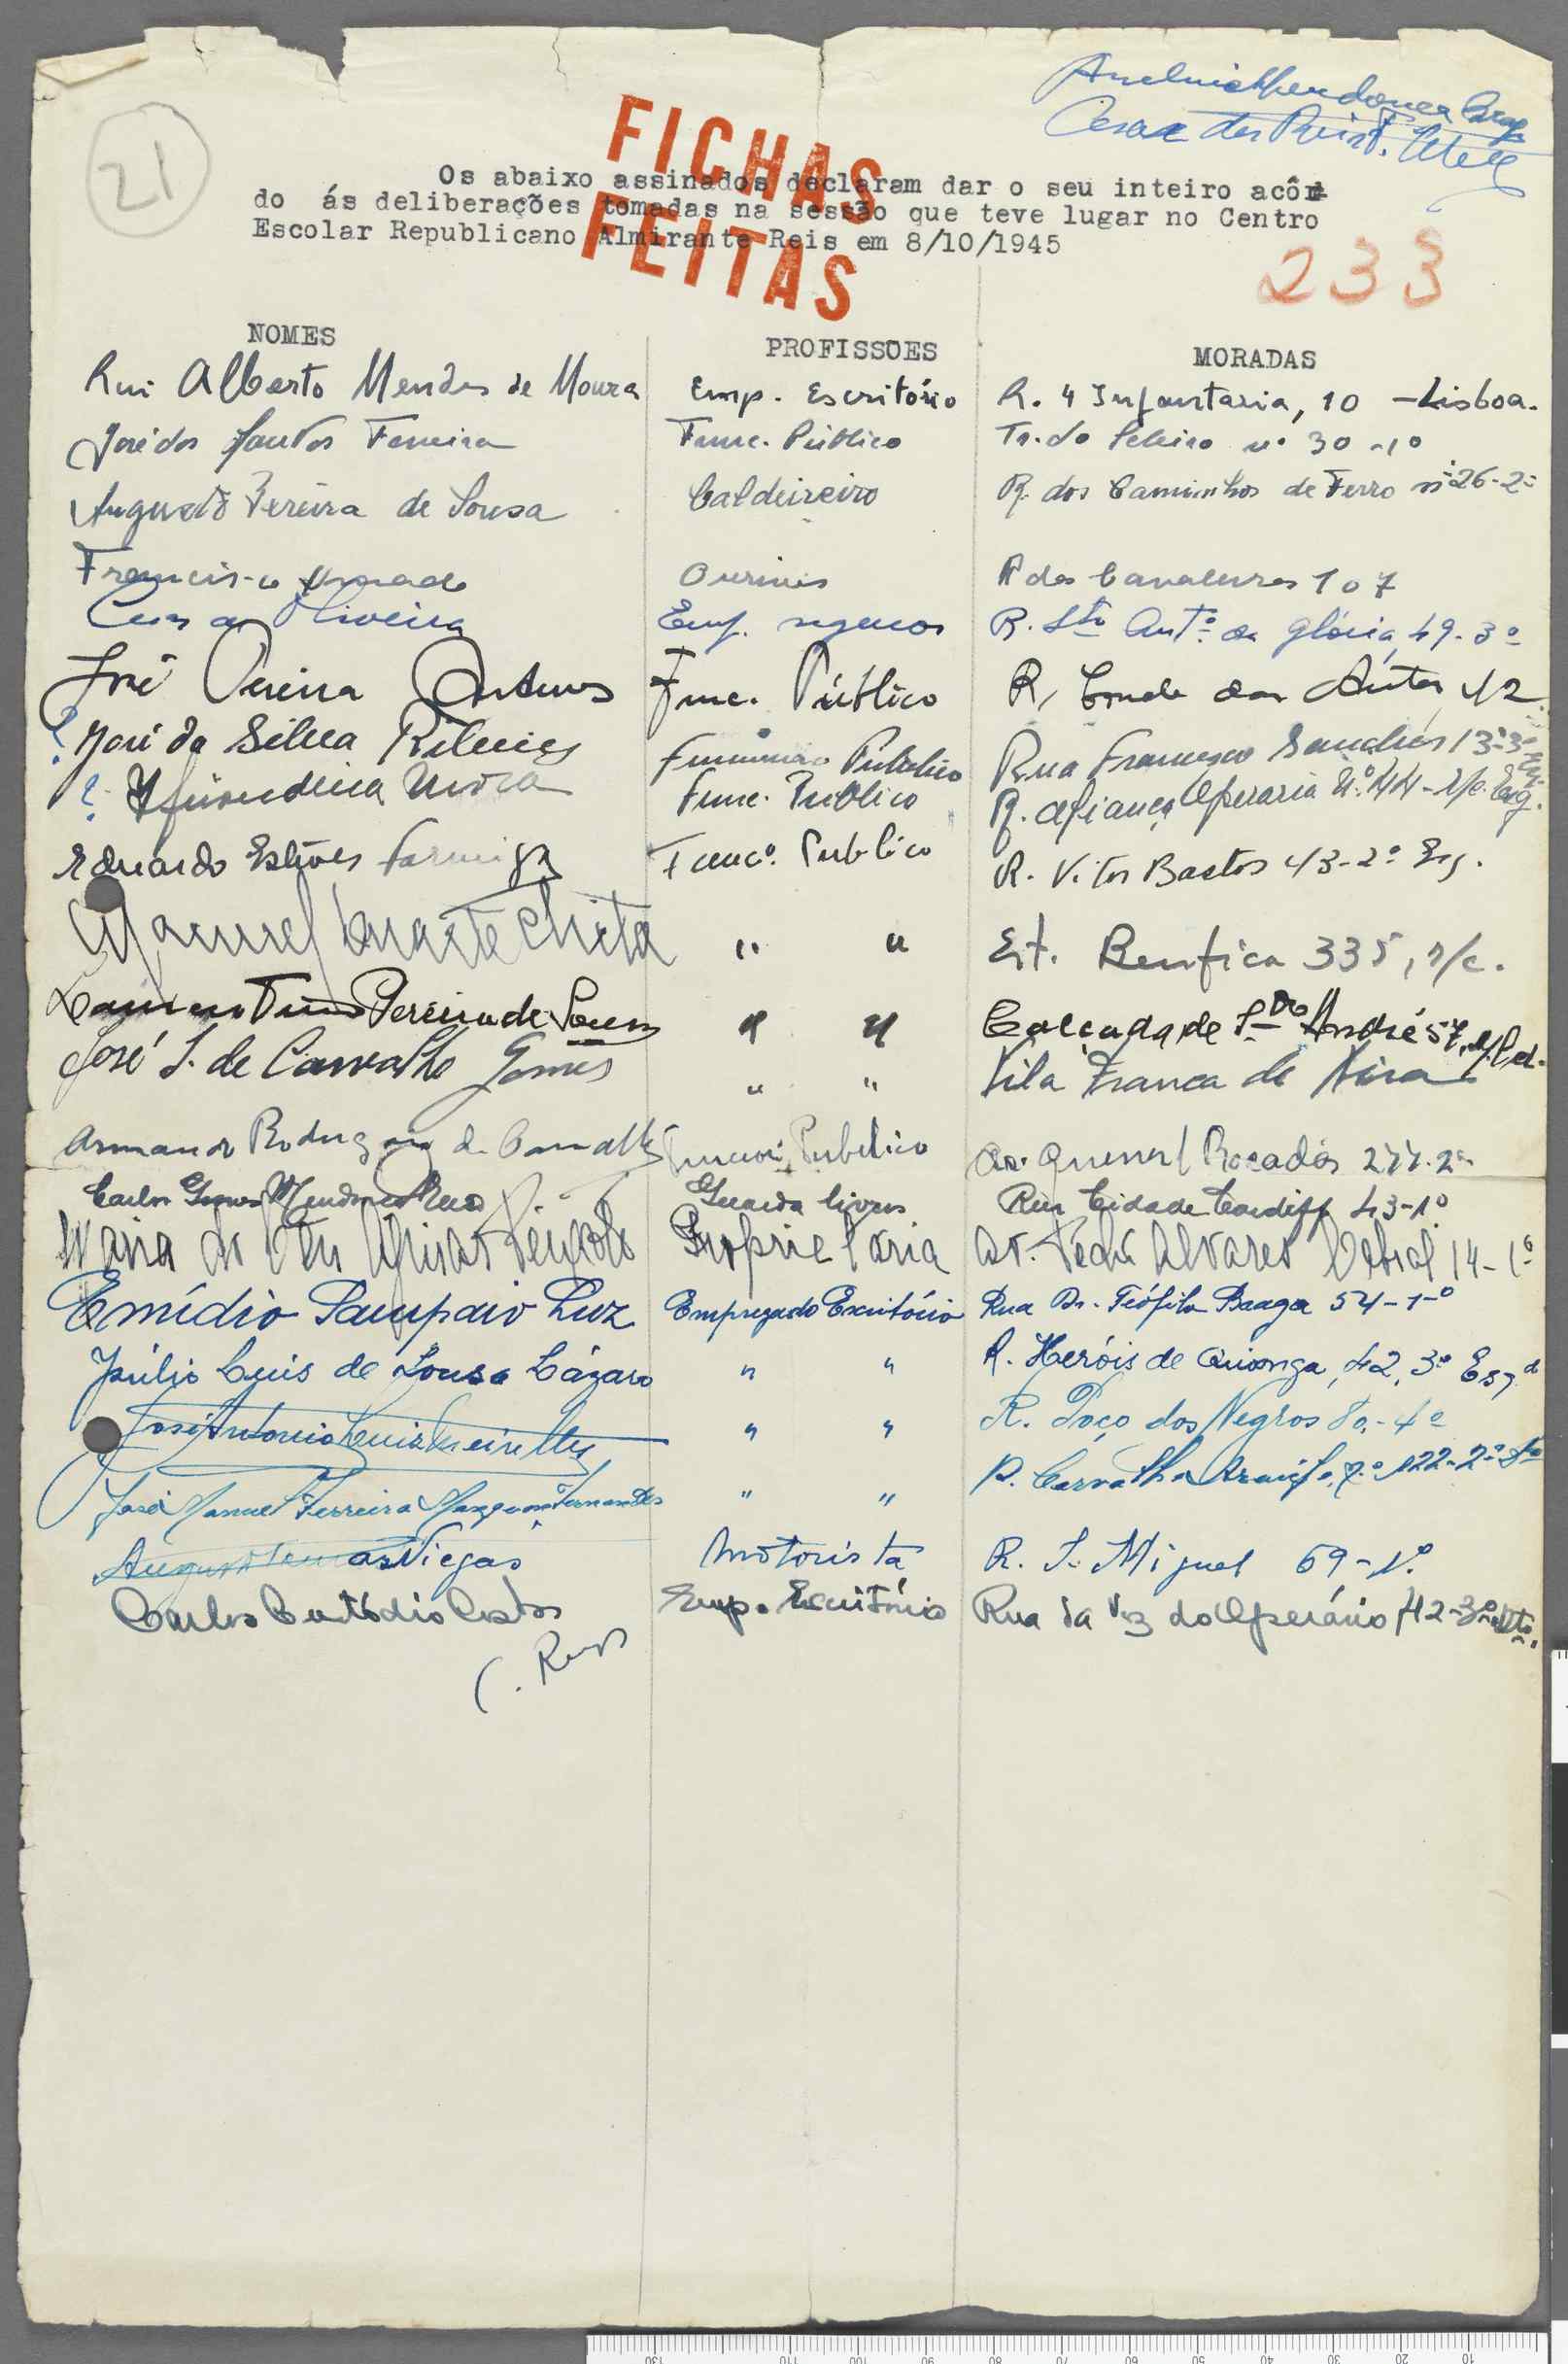 21
FICHAS
FEITAS
Cesar dos Reis
Os abaixo assinados declaram dar o seu inteiro acôr
do ás deliberações tomadas na sessão que teve lugar no Centro
Escolar Republicano Almirante Reis em 8/10/1945
233
NOMES PROFISSOES MORADAS
Rui Alberto Mendes de Moura Emp. Escritório R. 4 Infantaria, 10 - Lisboa.
José dos Santos Ferreira Func. Público Tr. do nº 30 - 1º
Augusto Pereira de Sousa Caldeireiro R. dos Caminhos de Ferro nº 26-2º
Francisco Ourives R dos Cavaleiros 107
Oliveira Emp. seguros R. Stº Antº da Glória, 49-3º
José Pereira Antunes Func. Público R. Conde das Antas, 42
? José da Silva Ribeiro Funcionário Publico Rua Francisco Sanches 13-3º
? Func. Publico R. Aliança Operaria Nº 44 - r/c. Esq.
Eduardo Estêves Formiga Funcº. Publico R. Vitor Bastos 43-2º Esq.
Manuel Duarte Chita " " Est. Benfica 335, r/c.
Laurentino Pereira de Sousa " " Calçada de Stº André 57,
José S. de Carvalho Gomes " " Vila Franca de Xira
Armando Rodrigues de Carvalho Publico Av. General Roçadas 277-2º
Carlos Gomes Guarda livros Rua Cidade Cardiff 43-1º
Maria do Proprietária Av. Pedro Alvares Cabral 14-1º
Emídio Sampaio Luz Empregado Escritório Rua Dr. Teófilo Braga 54-1º
Júlio Luís de Sousa Lázaro " " R. Heróis de Quionga, 42, 3º Esqd
José Antonio Luiz Meirelles " " R. Poço dos Negros 80,-4º
José Manuel Ferreira Fernandes " " R. Carvalho Araújo, 122-2º
Viegas Motorista R. S. Miguel 69-1º.
Carlos Custódio Emp. Escritório Rua da Voz do Operário 42-3º Dtº.